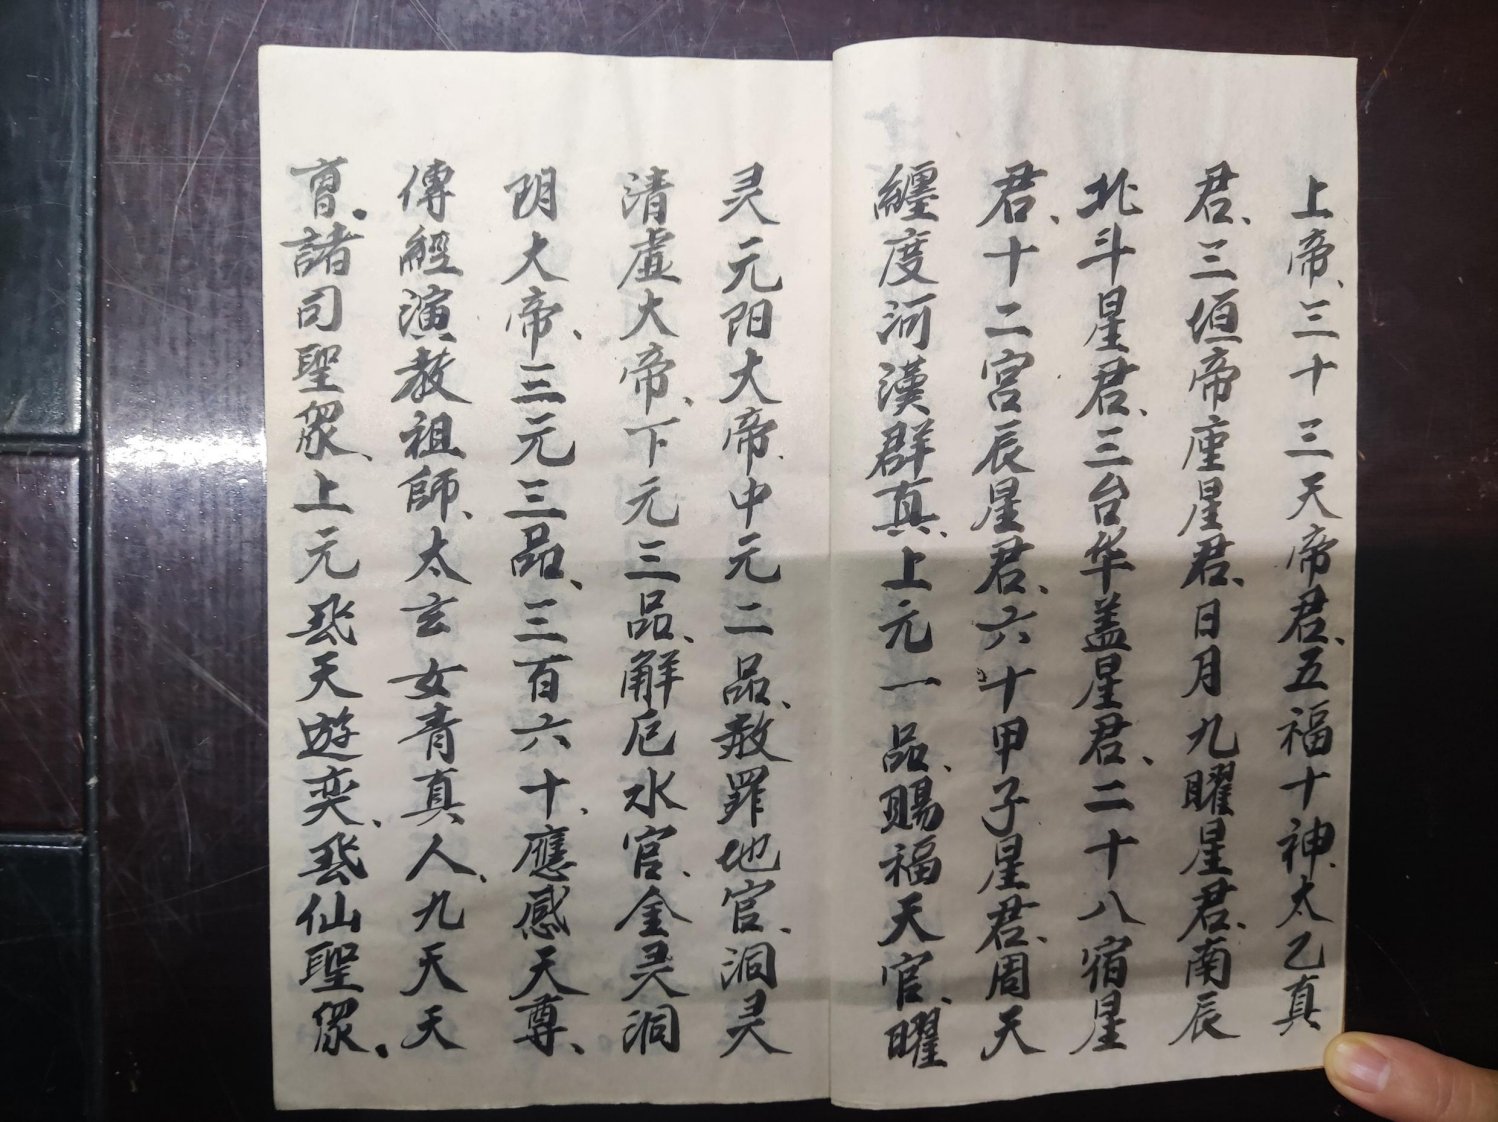 上帝、三十三天帝君、五福十神、太乙真
君、三垣帝座星君、日月九曜星君、南辰
北斗星君、三台华盖星君、二十八宿星
君、十二宫辰星君、六十甲子星君、周天
纏度河漢群真、上元一品、赐福天官、曜
灵元阳大帝、中元二品、赦罪地官、洞灵
清虚大帝、下元三品、解厄水官、金灵洞
阴大帝、三元三品、三百六十、應感天尊、
傳經演教祖師、太玄女青真人、九天天
曹、諸司聖眾、上元飛天遊奕、飛仙聖眾、